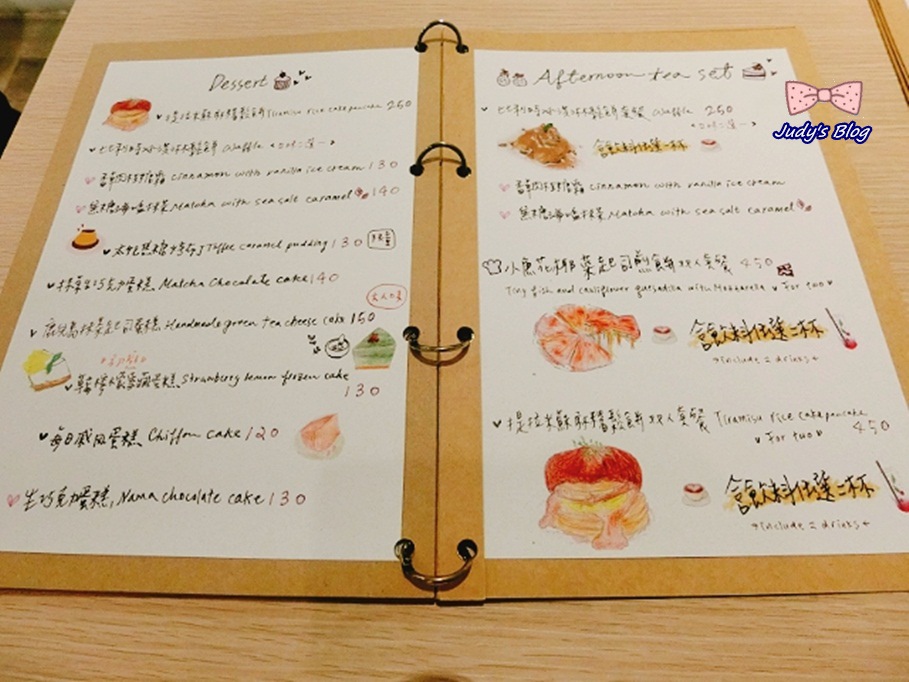 Dessert
提拉米蘇酥醬鬆餅 Tiramisu rice cake pancake 250
比利時冰淇淋鬆餅 Waffle <口味二選一>
香草肉桂糖霜 cinnamon with vanilla ice cream 130
焦糖海鹽抹茶 Matcha with sea salt caramel 140
太妃焦糖烤布丁 Toffee caramel pudding 130 限量
抹茶巧克力蛋糕 Matcha Chocolate cake 140
鹿兒島抹茶起司蛋糕 Handmade green tea cheese cake 150
草莓檸檬霜凍蛋糕 Strawberry lemon frozen cake
130
每日戚風蛋糕 Chiffon cake 120
生巧克力蛋糕 Nama chocolate cake 130
Afternoon tea set
比利時冰淇淋鬆餅套餐 Waffle 250
<口味二選一>
飲料任選一杯
香草肉桂糖霜 cinnamon with vanilla ice cream
焦糖海鹽抹茶 Matcha with sea salt caramel
小魚花椰菜起司煎餅双人套餐 450
Tiny fish and cauliflower quesadilla with Mozzarella For two
飲料任選二杯
Include 2 drinks
提拉米蘇酥醬鬆餅双人套餐 Tiramisu rice cake pancake
For two 450
飲料任選二杯
Include 2 drinks
Judy's Blog